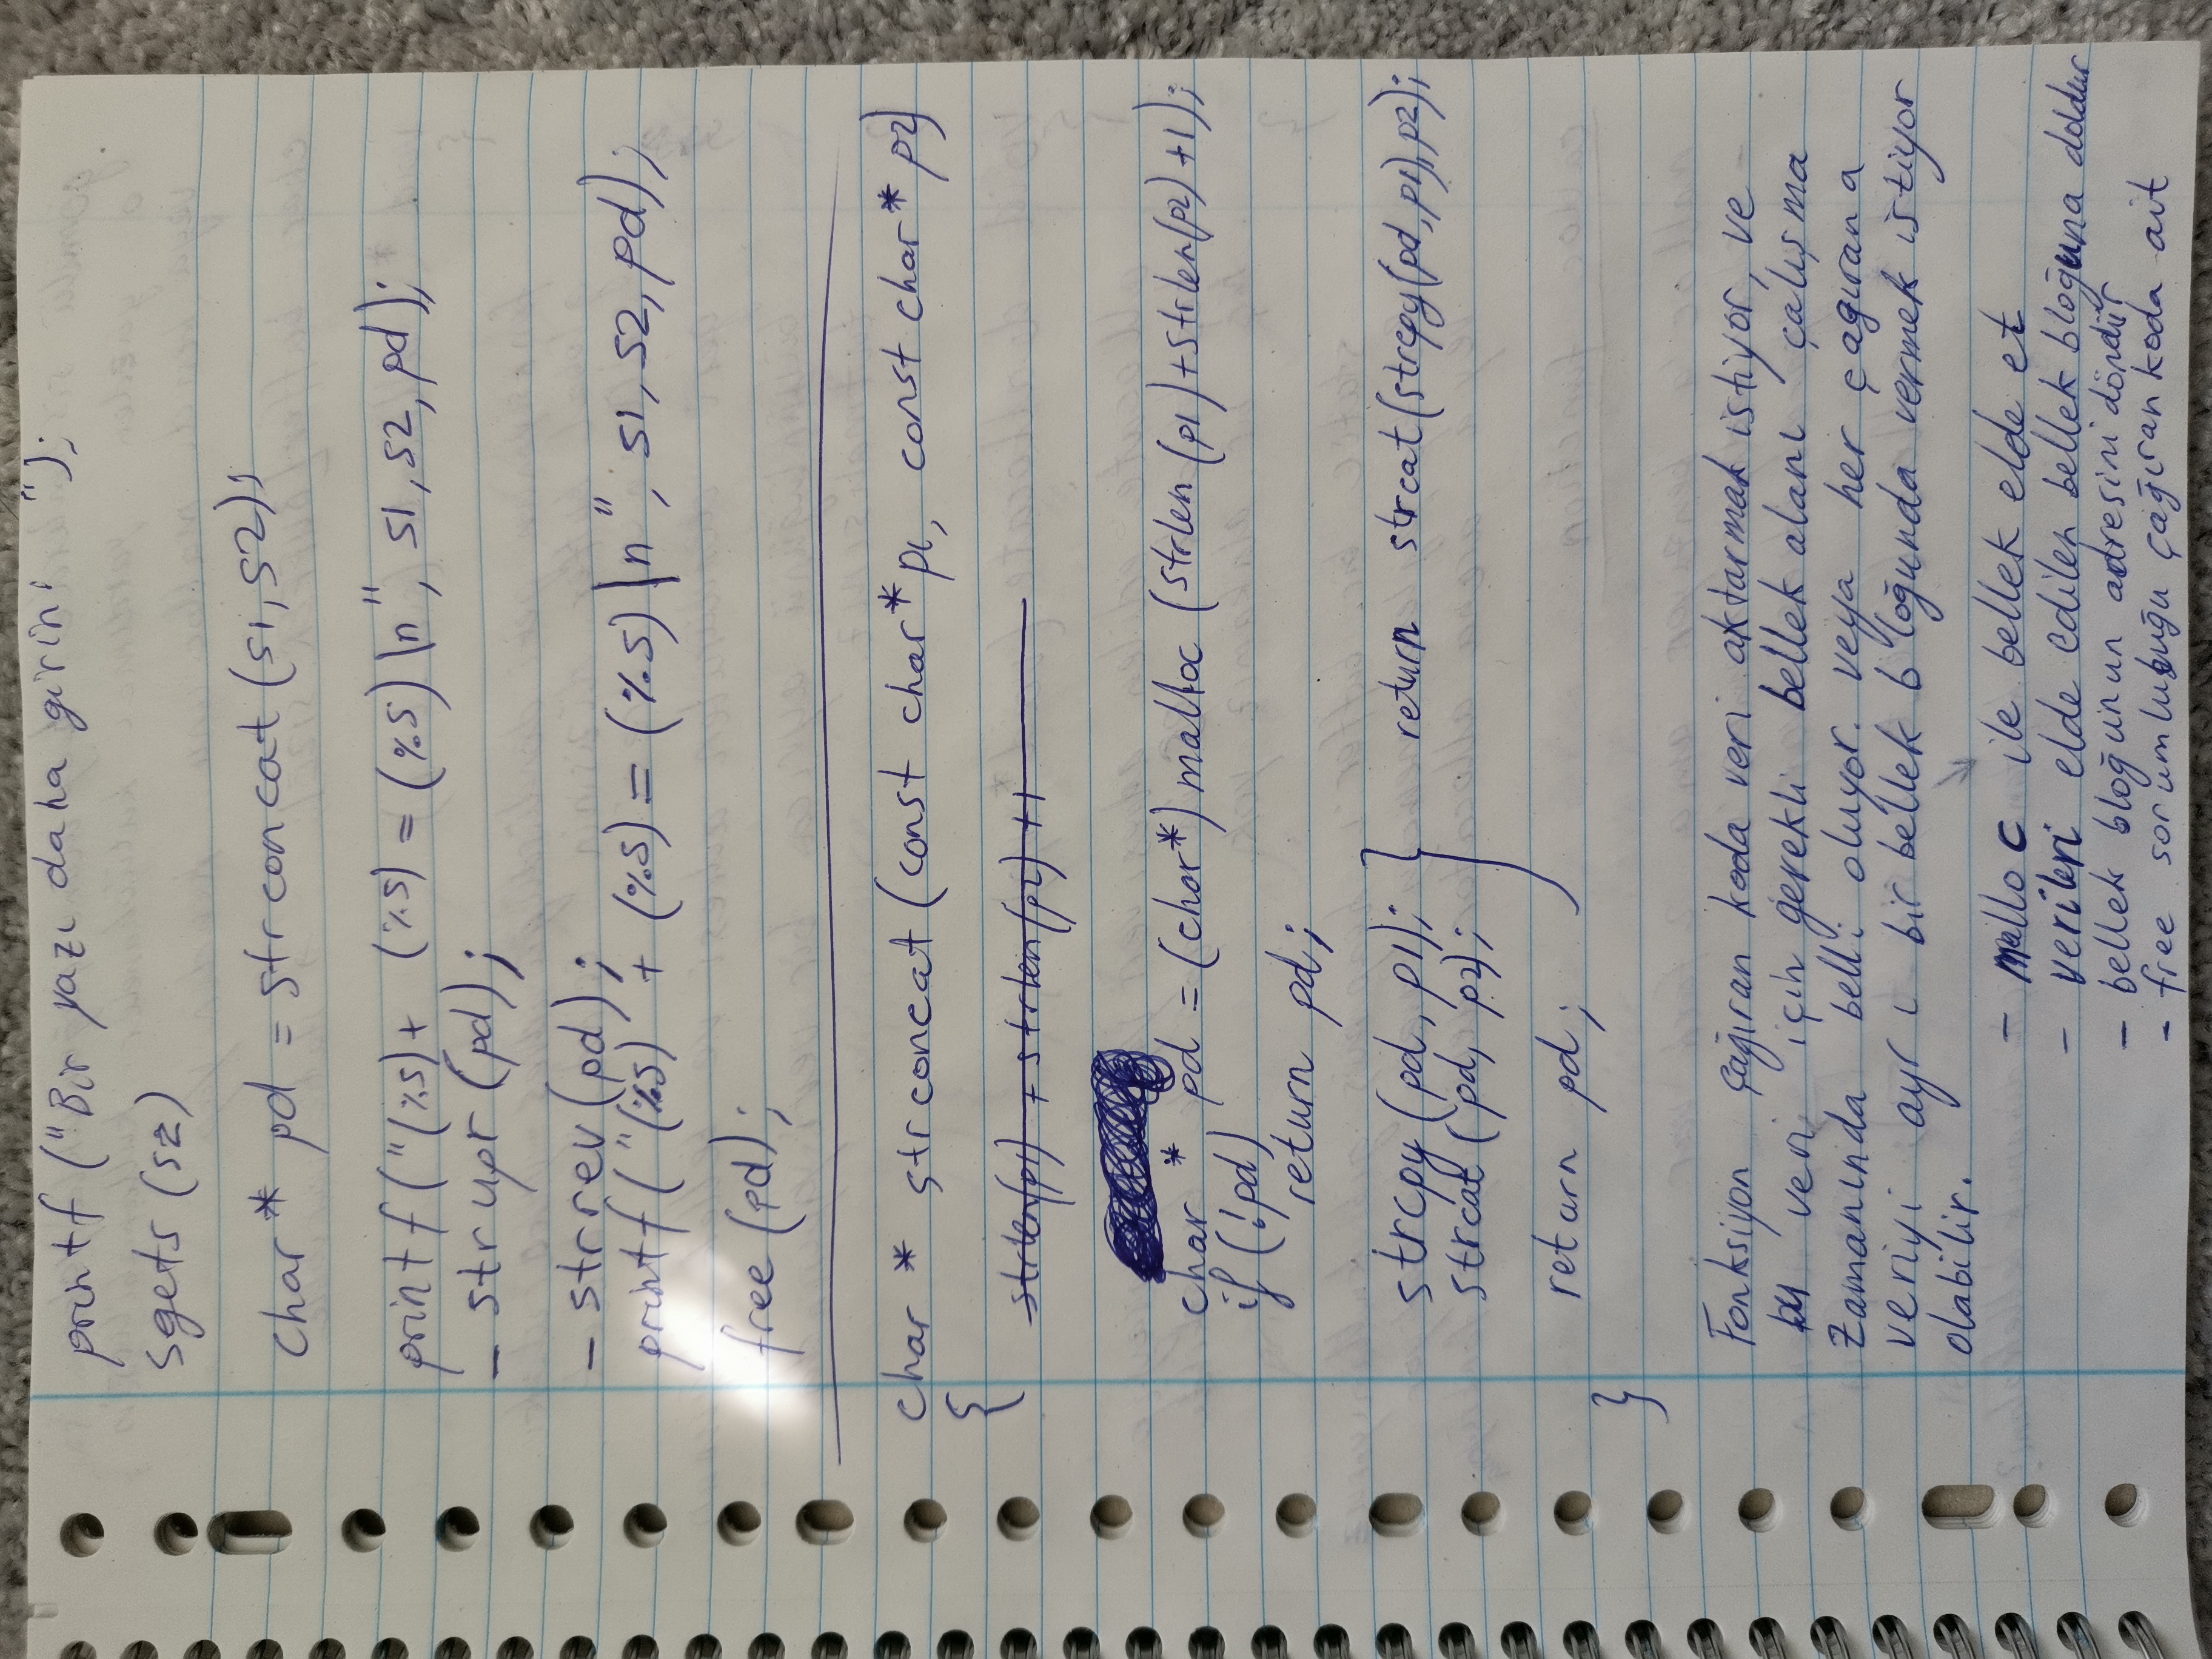 printf ("Bir yazı daha girin: ");
sgets (s2)
char* pd = strconcat (s1, s2);
printf ("(%s)+ (%s) = (%s) \n", s1, s2, pd);
_strupr (pd);
_strrev (pd);
printf ("(%s) + (%s) = (%s) \n", s1, s2, pd);
free (pd);
char * strconcat (const char* p1, const char* p2)
{
strlen(p1) + strlen(p2) +1
char * pd = (char*) malloc (strlen (p1)+strlen(p2) +1);
if (!pd)
return pd;
strcpy (pd, p1); } return strcat(strcpy(pd,p1),p2);
strcat (pd, p2);
return pd;
}
Fonksiyon çağıran koda veri aktarmak istiyor, ve
bu veri için gerekli bellek alanı çalışma
zamanında belli oluyor. veya her çağırana
veriyi ayrı bir bellek bloğunda vermek istiyor
olabilir.
- malloc ile bellek elde et
- verileri elde edilen bellek bloğuna doldur
- bellek bloğunun adresini döndür
- free sorumluluğu çağıran koda ait